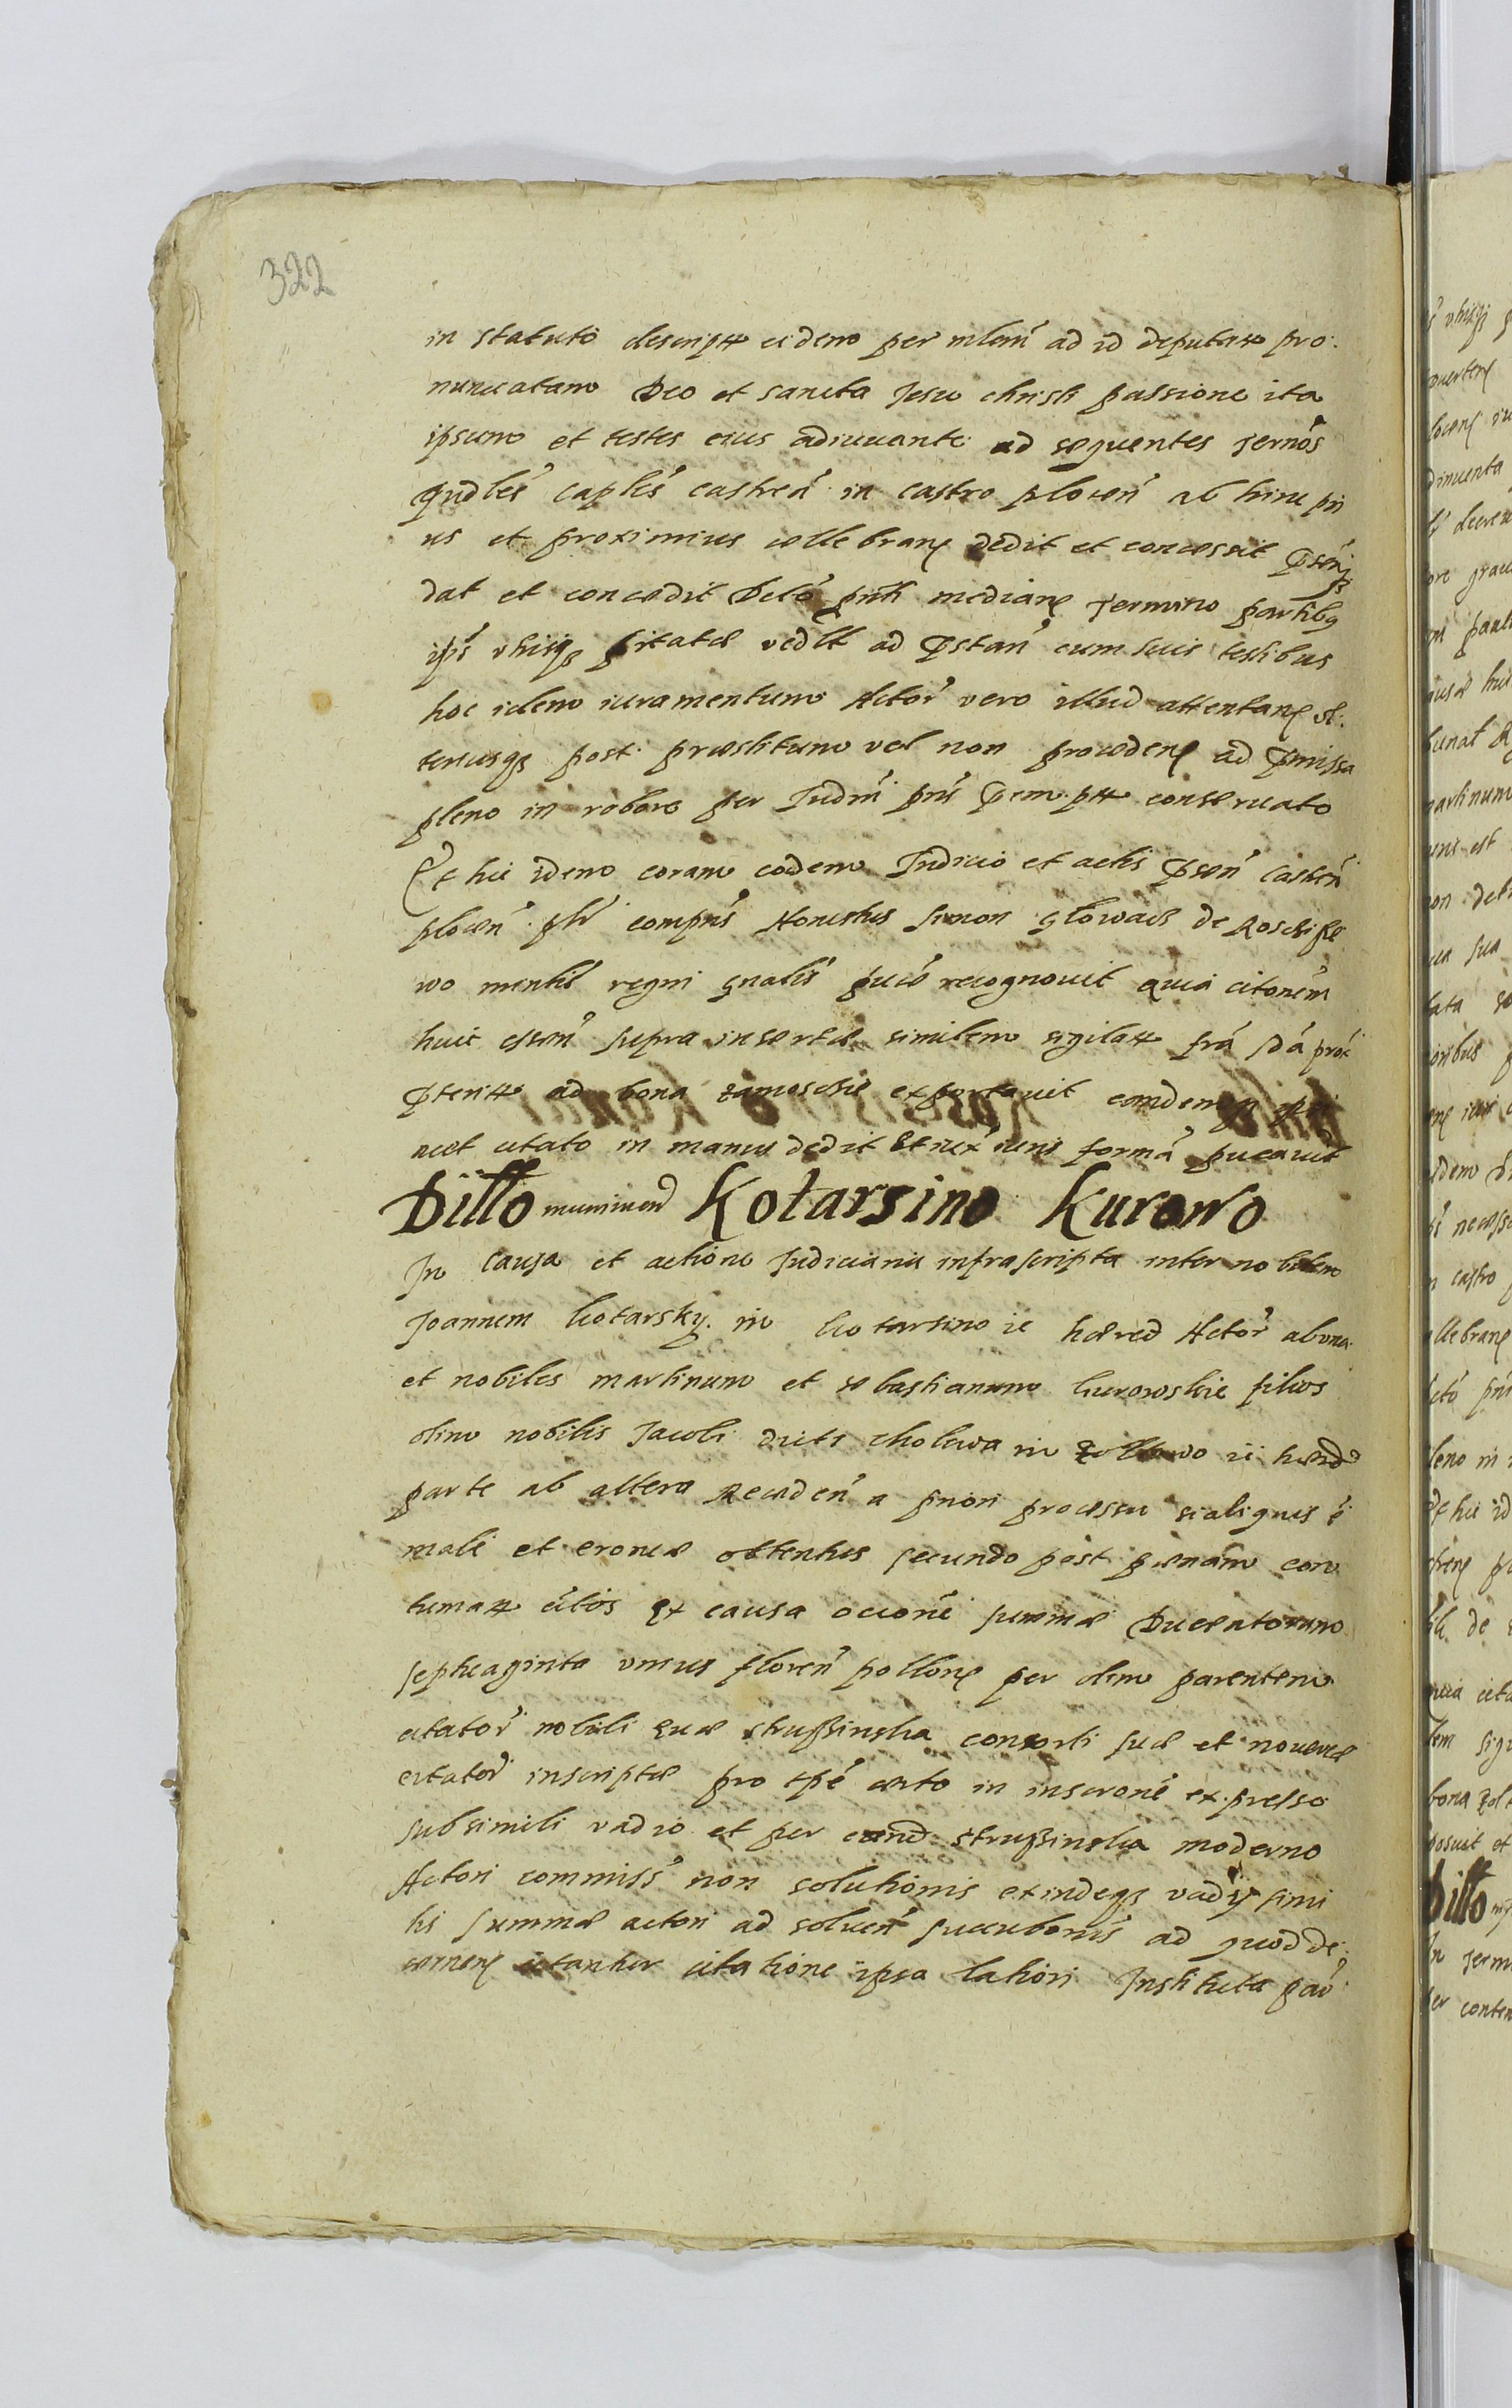 322
in statuto descript eidem per mlem ad id deputat pro
nunciatam Deo et sancta Jesu christi passione ita
ipsum et testes eius adiuuante ad sequentes termos
qudles caples castren in castro plocen ab hinc pri
us et proximius cellebran dedit et concessit
dat et concedit Dcto pnti median termino partibq
ips vtrisq citatæ vedlt ad pstan cum suis testibus
hoc idem iuramentum Actor vero illud attentan vl
teriusq post præstitum vel non proceden ad pmissa
pleno in robore per Judm pns conseruato
Et hic idem coram eodem Judicio et actis pren castren
plocen plr compns Honestus Simon glowacz de Roscisze
wo regni gnalis recognouit quia citonem
huic essen supra insertæ similem sigilat
ad bona zamoschie exportauit eamdemq ipsi
met citato in manus dedit Et iuris forma
Dillo Kotarsino Kurowo
In causa et actione Judiciaria infrascripta inter nobilem
Joannem kotarsky in kotarsino ie hæred Actor ab vna
et nobiles martinum et sebastianum kurowskie filios
olim nobilis Jacobi dicti cholewa in ii hæred
parte ab altera Receden a priori processu si aliquis e
male et eroneæ obtentus secundo post pænam con
tumat citos Ex causa ocione summæ Ducatorum
septuaginta vnius floren pollon per olim parentem
citator nobili Euæ strussinska consorti suæ et nouercæ
citator inscriptæ pro tpe certo in inscrone expresso
sub simili vadio et per eand strussinska moderno
Actori commiss non solutionis exindeq vadij simi
lis summæ actori ad soluen succubonis ad quod de
cernen citantur citatione ipsa latiori Instituta